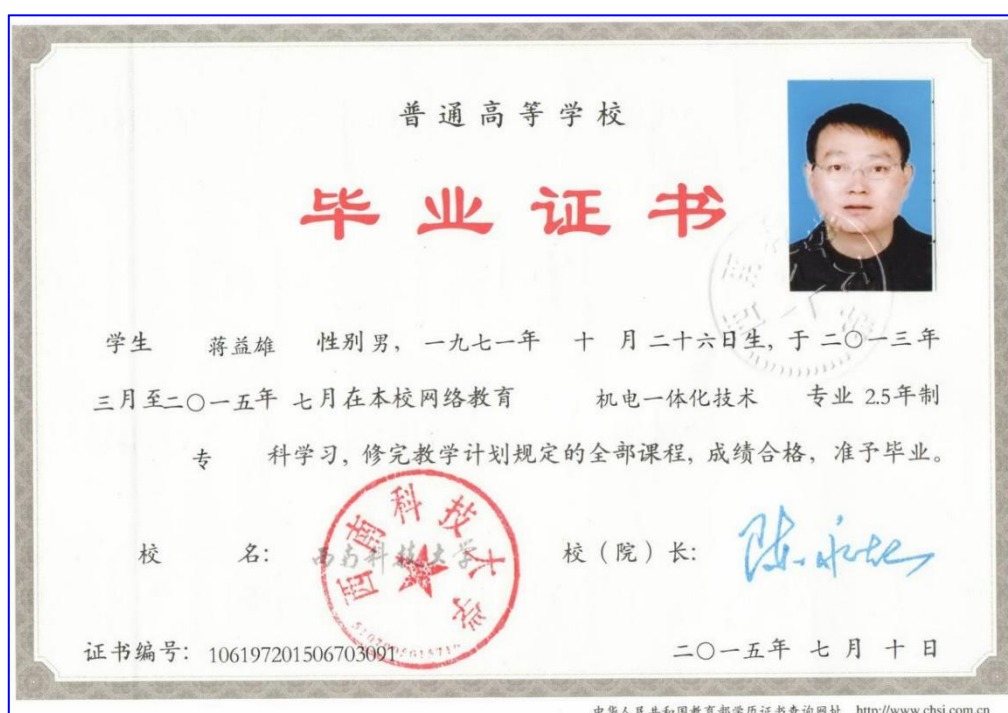 普通高等学校
毕业证书
学生 蒋益雄 性别男，一九七一年 十 月二十六日生，于二〇一三年
三月至二〇一五年 七月在本校网络教育 机电一体化技术 专业 2.5年制
专 科学习，修完教学计划规定的全部课程，成绩合格，准予毕业。
校 名：西南科技大学 校（院）长：
西南科技大学
证书编号：106197201506703091 二〇一五年 七月 十 日
中华人民共和国教育部学历证书查询网址 http://www.chsi.com.cn